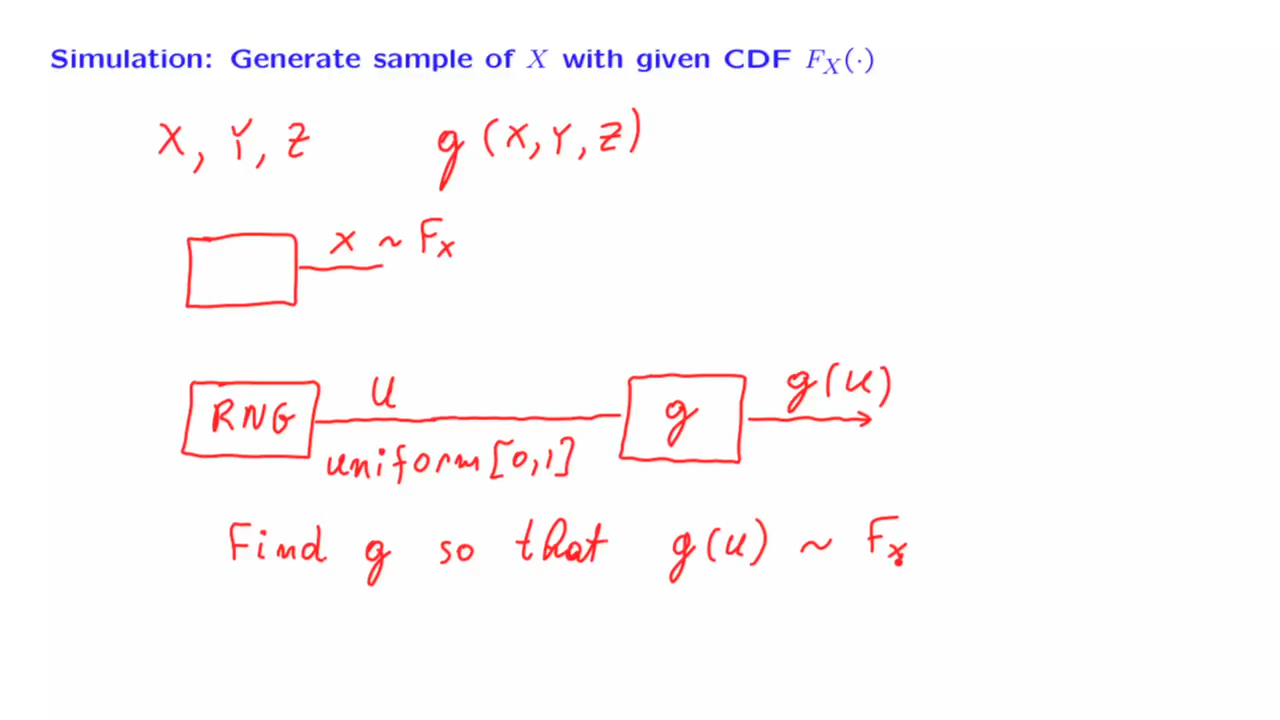 Simulation: Generate sample of X with given CDF F_X(·)
X, Y, Z g(X, Y, Z)
X ~ F_X
RNG U uniform[0,1] g g(U)
Find g so that g(U) ~ F_X